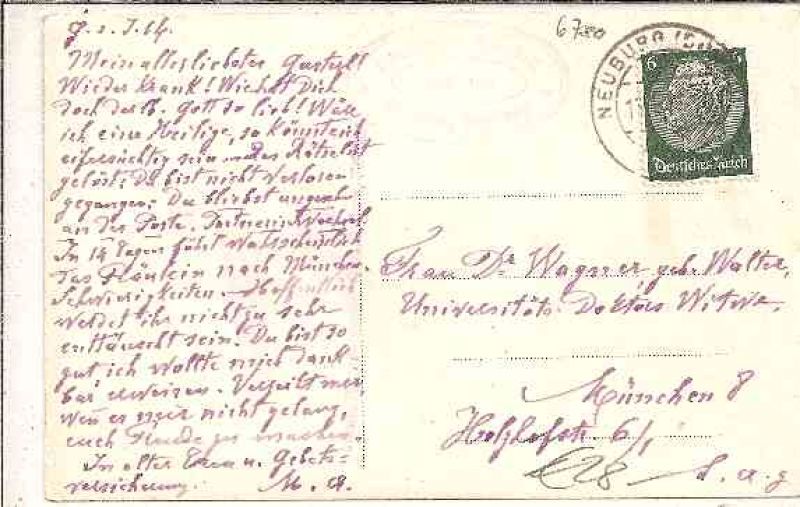 Mein allerliebster
Wieder krank! Dich
doch der lb. Gott so lieb! Wäre
ich eine Heilige, so könnte ich
eifersüchtig sein Rätsel ist
gelöst: Du bist nicht verloren
gegangen: Du bliebst
an der Poste.
In 14 Tagen fährt wahrscheinlich
das Fräulein nach München.
Schwierigkeiten. Hoffentlich
werdet ihr nicht zu sehr
enttäuscht sein. Du bist so
gut, ich wollte mich dank-
bar erweisen. Verzeiht mir,
wenn es mir nicht gelang,
euch Freude zu machen.
In alter Treue u. Gebets-
versicherung. M. A.
6780
NEUBURG
6
Deutsches Reich
Frau Dr Wagner, geb. Walter,
Universitäts-Doktors Witwe,
München 8
6/1
€28